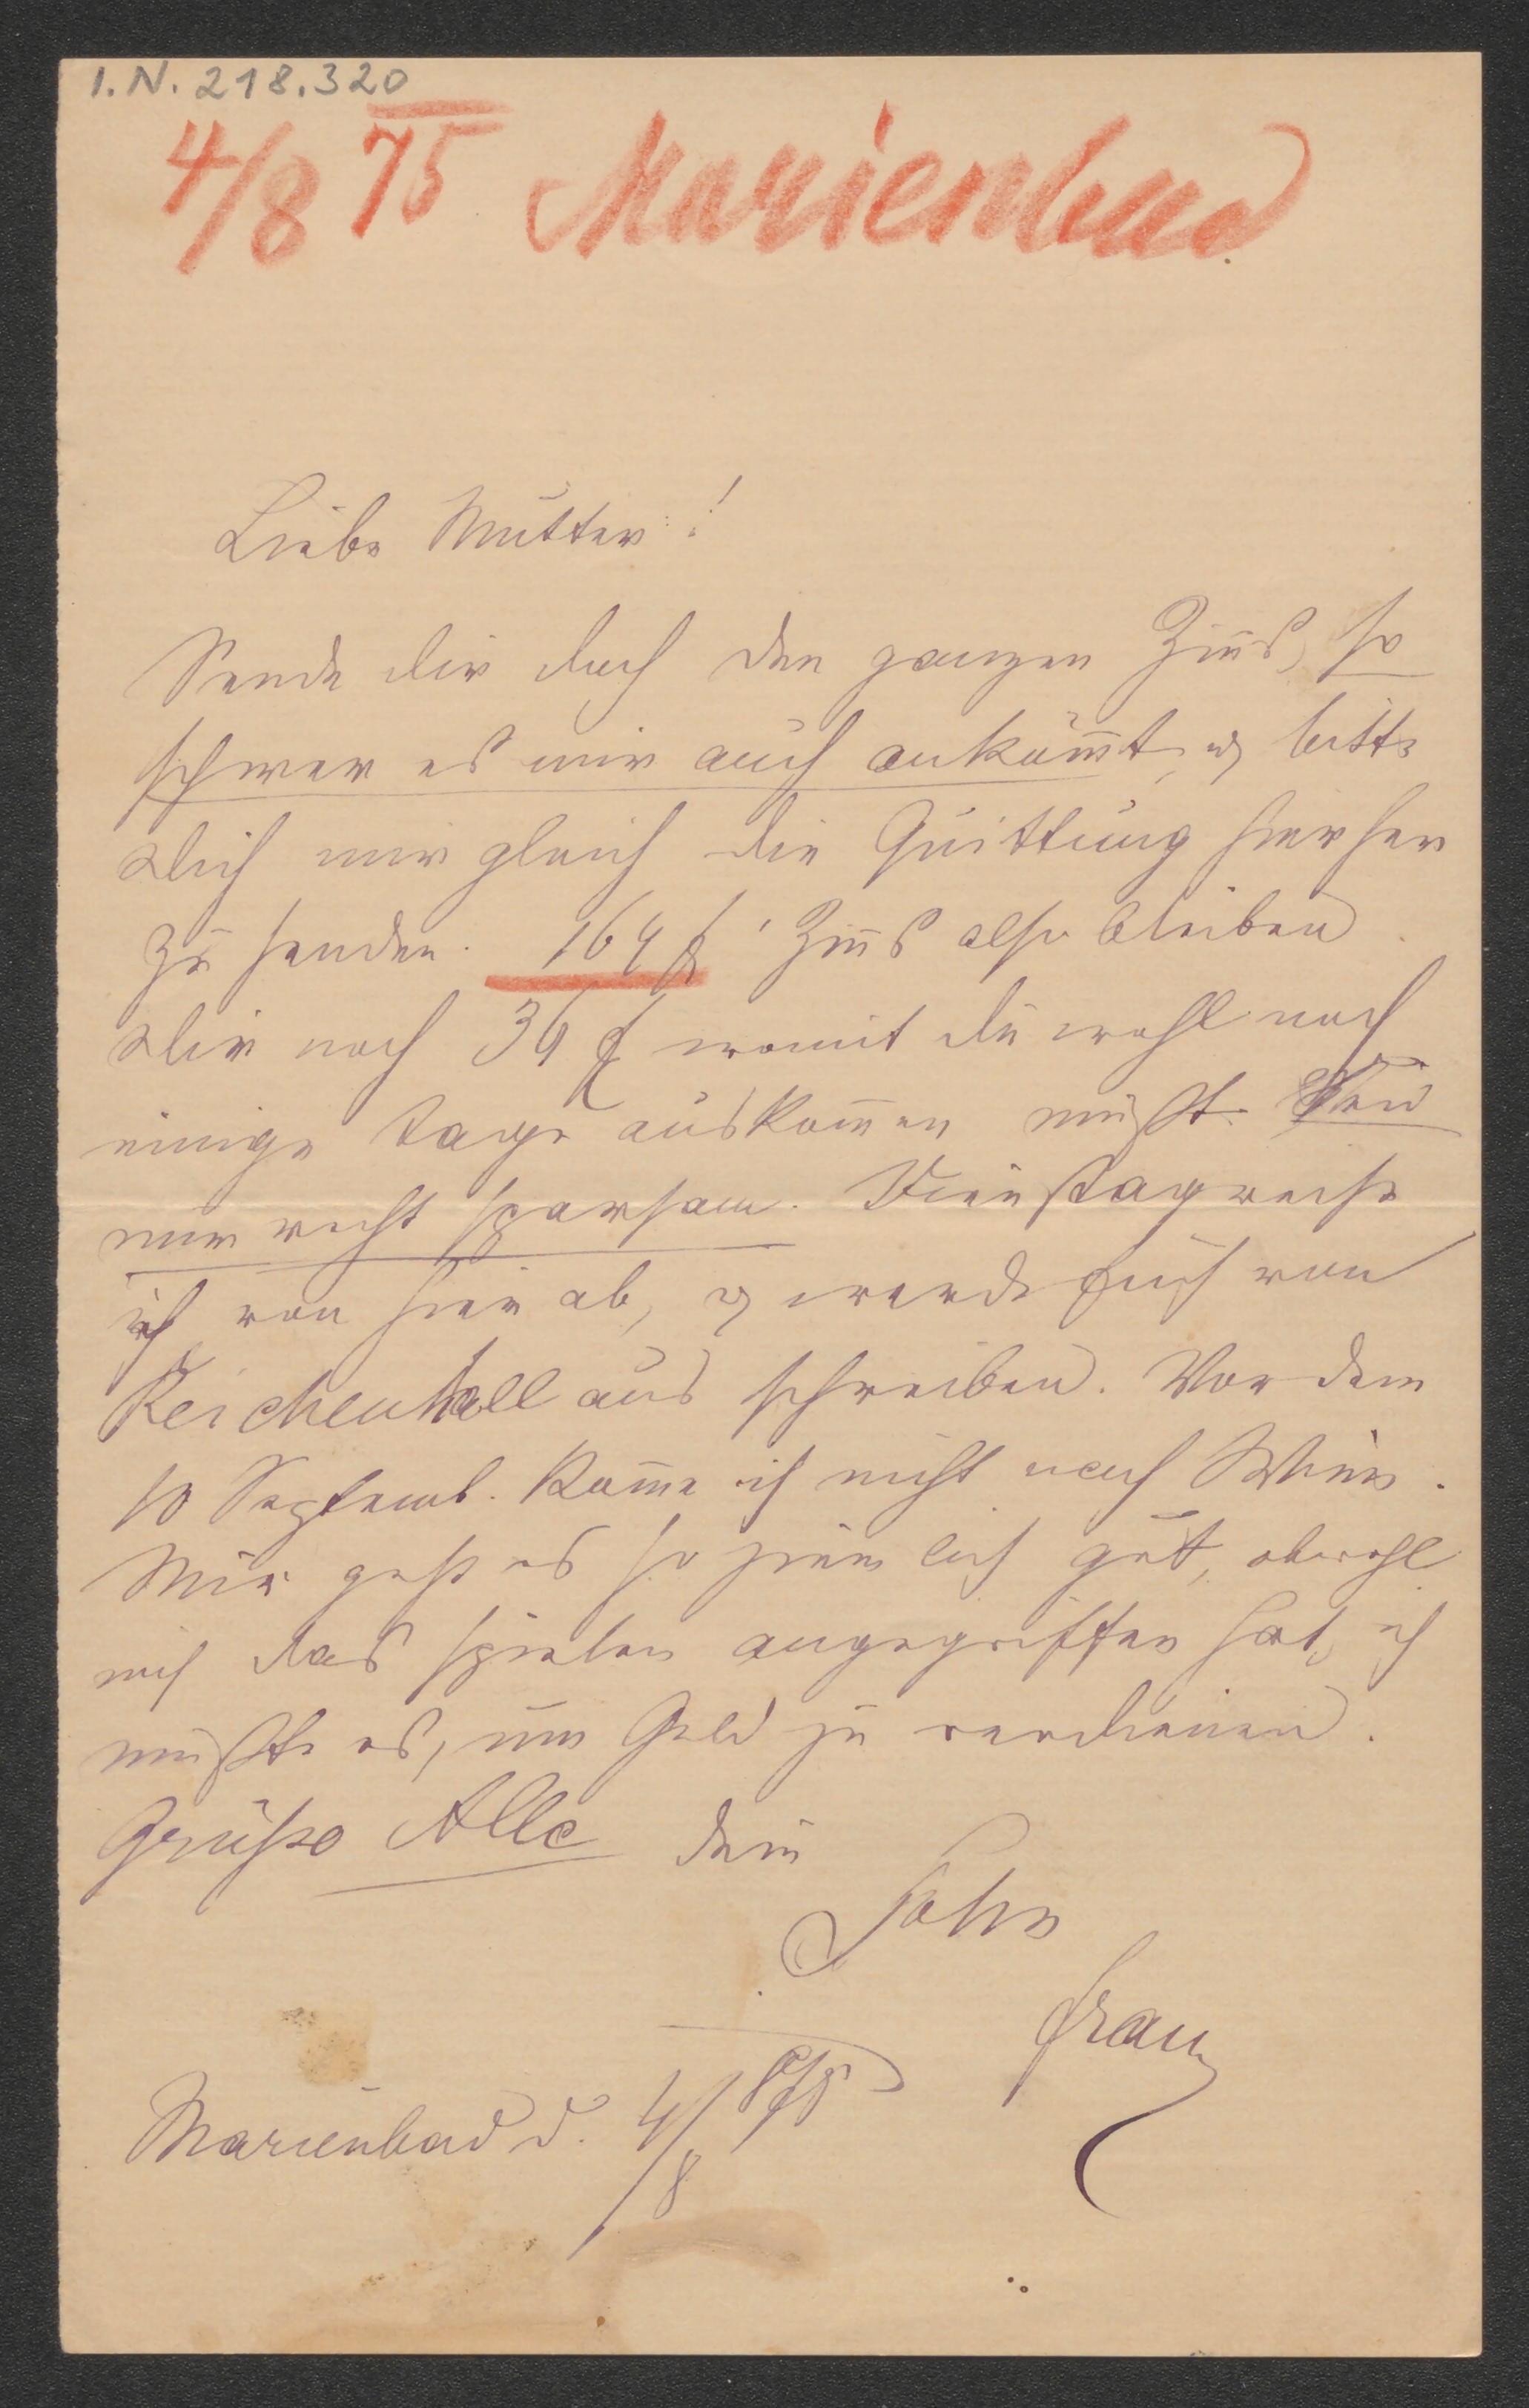 I.N. 218.320
4/8 75 Marienbad
Liebe Mutter!
Sende dir doch den ganzen Zinß, so
schwer es mir auch ankom̄t, u bitte
dich mir gleich die Quittung hierher
zu senden. 164 f Zinß also bleiben
dir noch 36 f womit du wohl noch
einige Tage auskom̄en mußt. Sei
nur recht sparsam. Dienstag reise
ich von hier ab, u werde Euch von
Reichenhall aus schreiben. Vor dem
10 Septemb. kom̄e ich nicht nach Wien.
Mir geht es so ziemlich gut, obwohl
mich das spielen angegriffen hat, ich
mußte es, um Geld zu verdienen.
Grüsse Alle dein
Sohn
Franz
Marienbad d. 4/8 875